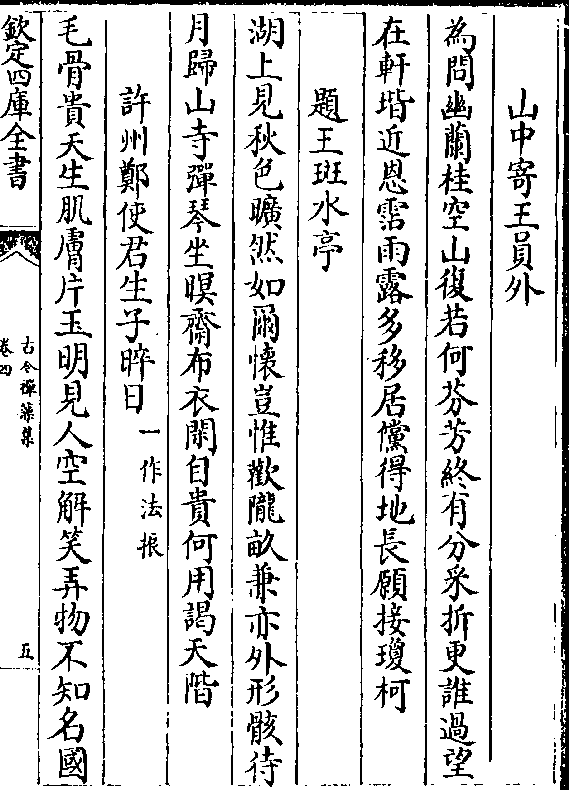 山中寄王員外
為問幽蘭桂空山復若何芬芳終有分采折更誰過望
在軒堦近恩霑雨露多移居儻得地長願接瓊柯
題王班水亭
湖上見秋色曠然如爾懷豈惟歡隴畝兼亦外形骸待
月歸山寺彈琴坐暝齋布衣閑自貴何用謁天階
許州鄭使君生子晬日一作法振
毛骨貴天生肌膚片玉明見人空解笑弄物不知名國
欽定四庫全書
古今禪藻集
卷四
五